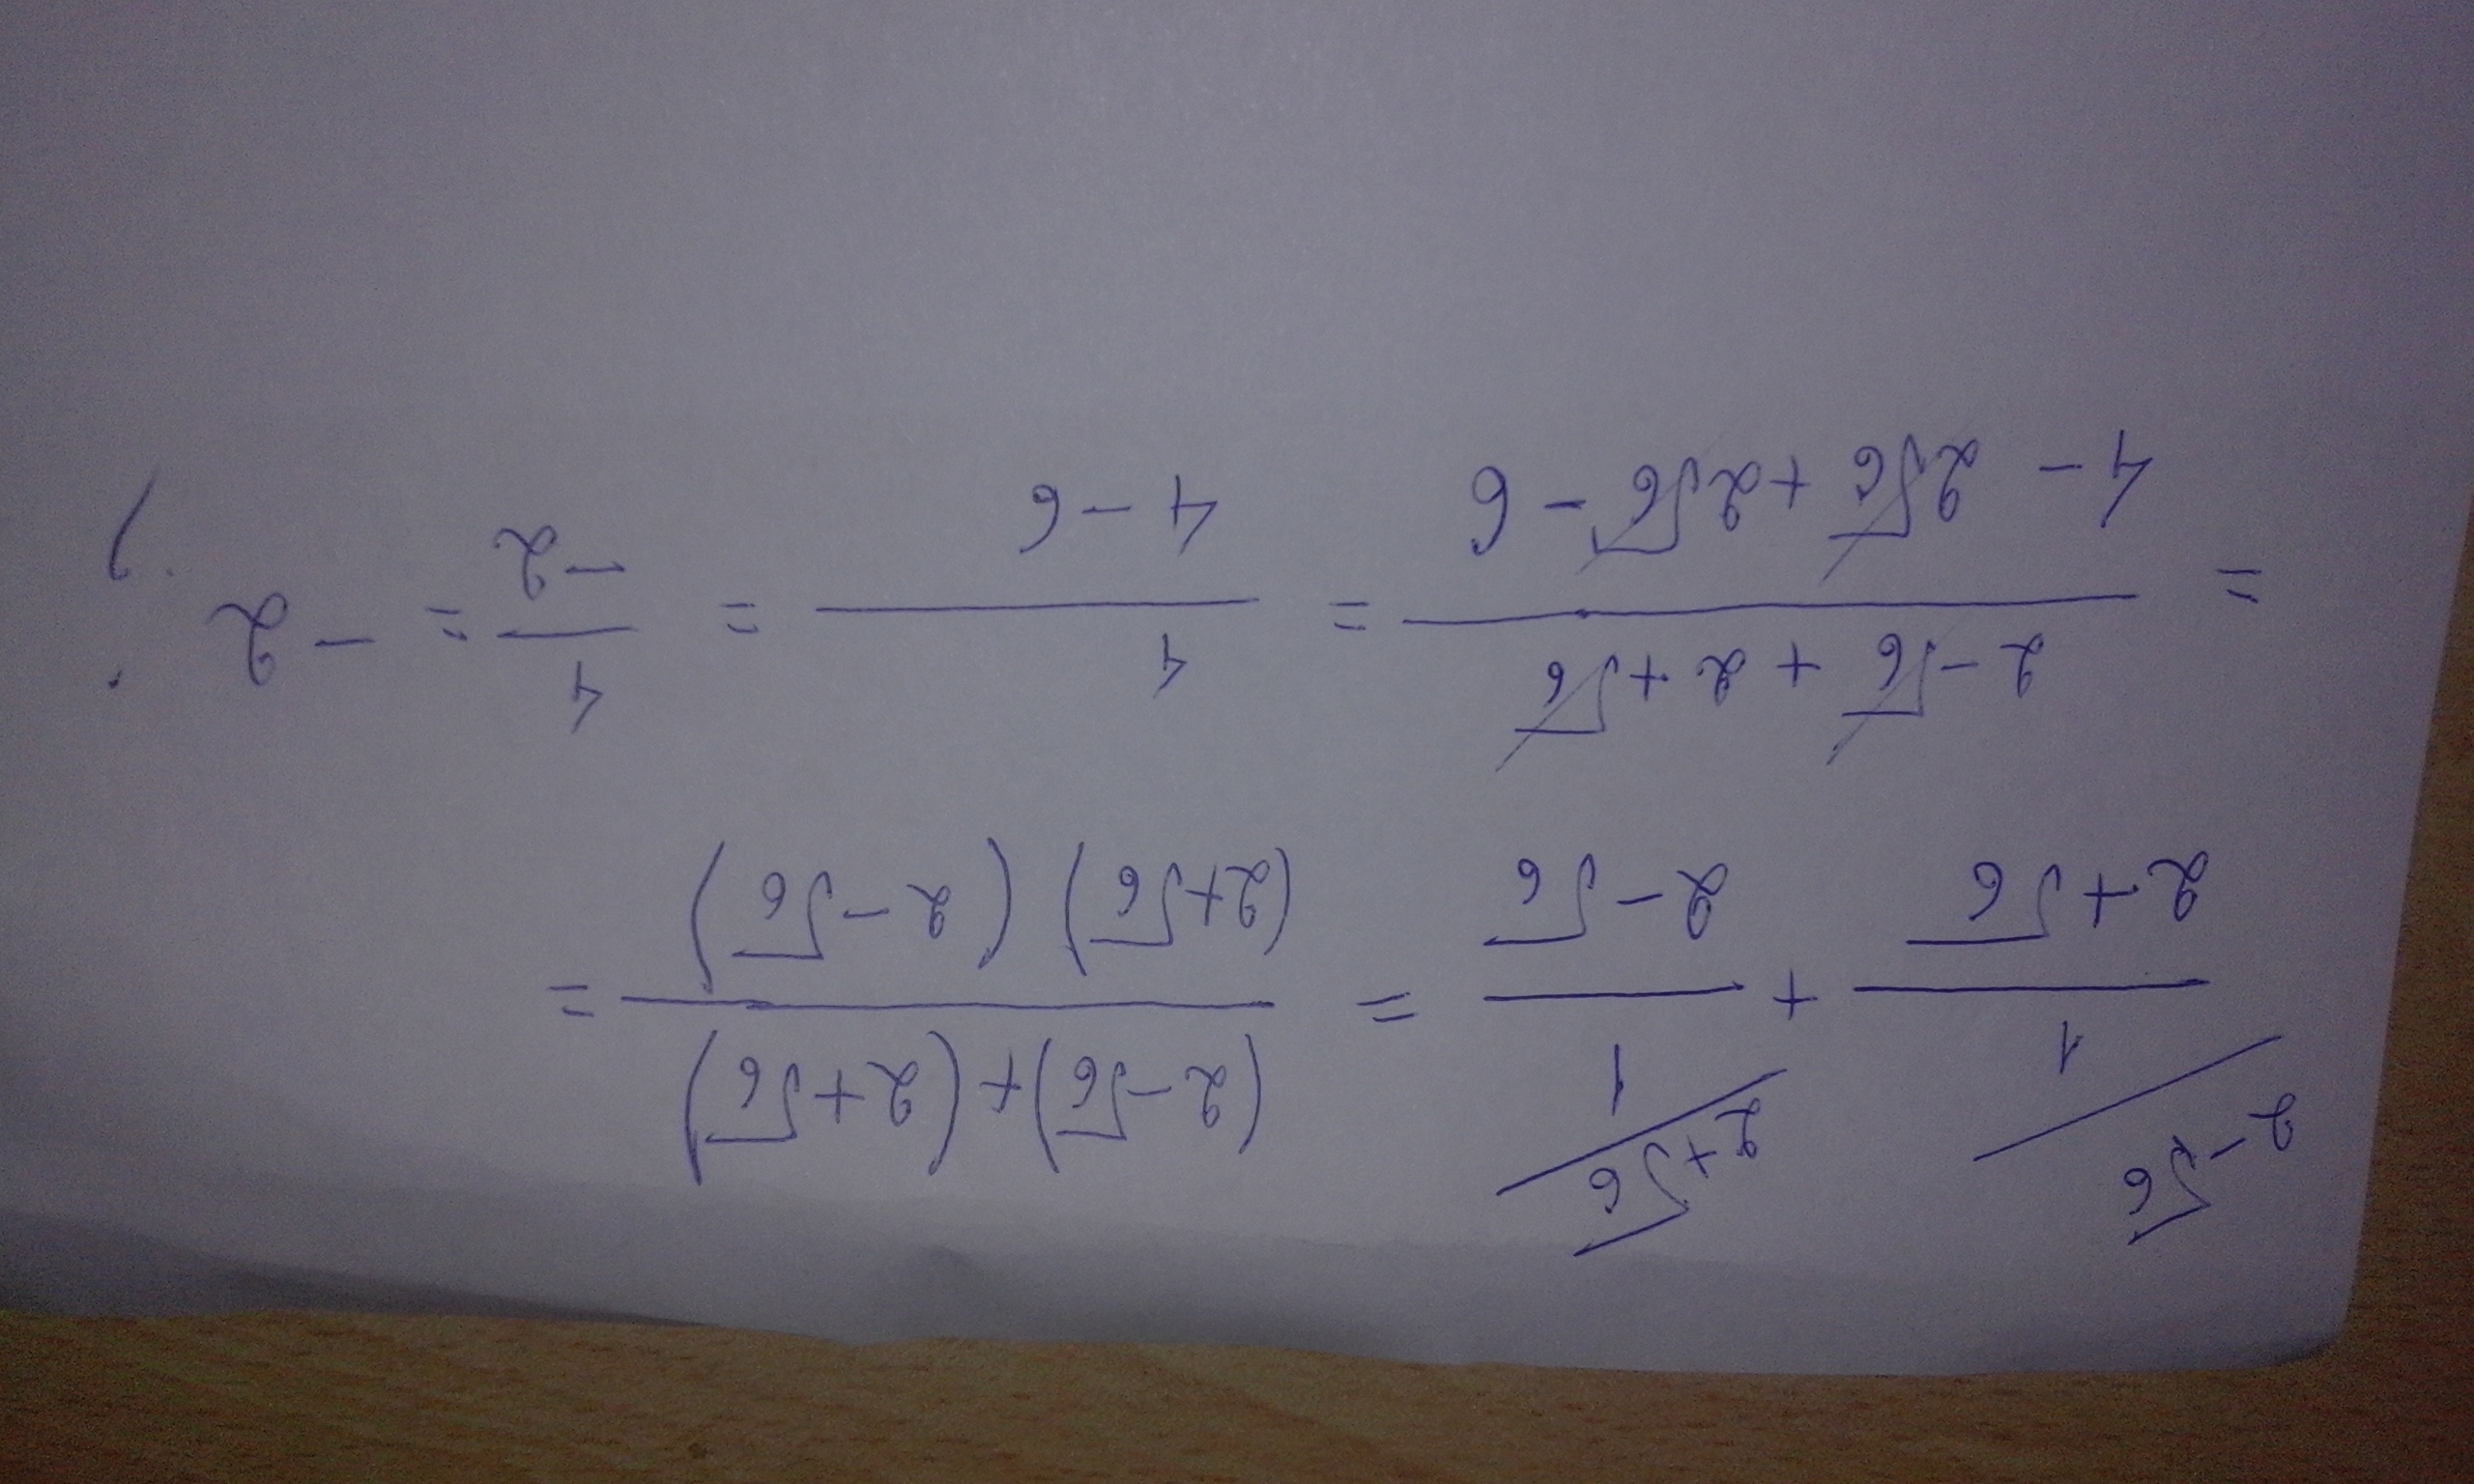 2-√6 2+√6
1/(2+√6) + 1/(2-√6) = ((2-√6)+(2+√6))/((2+√6)(2-√6)) =
= (2-√6+2+√6)/(4-2√6+2√6-6) = 4/(4-6) = 4/-2 = -2 !